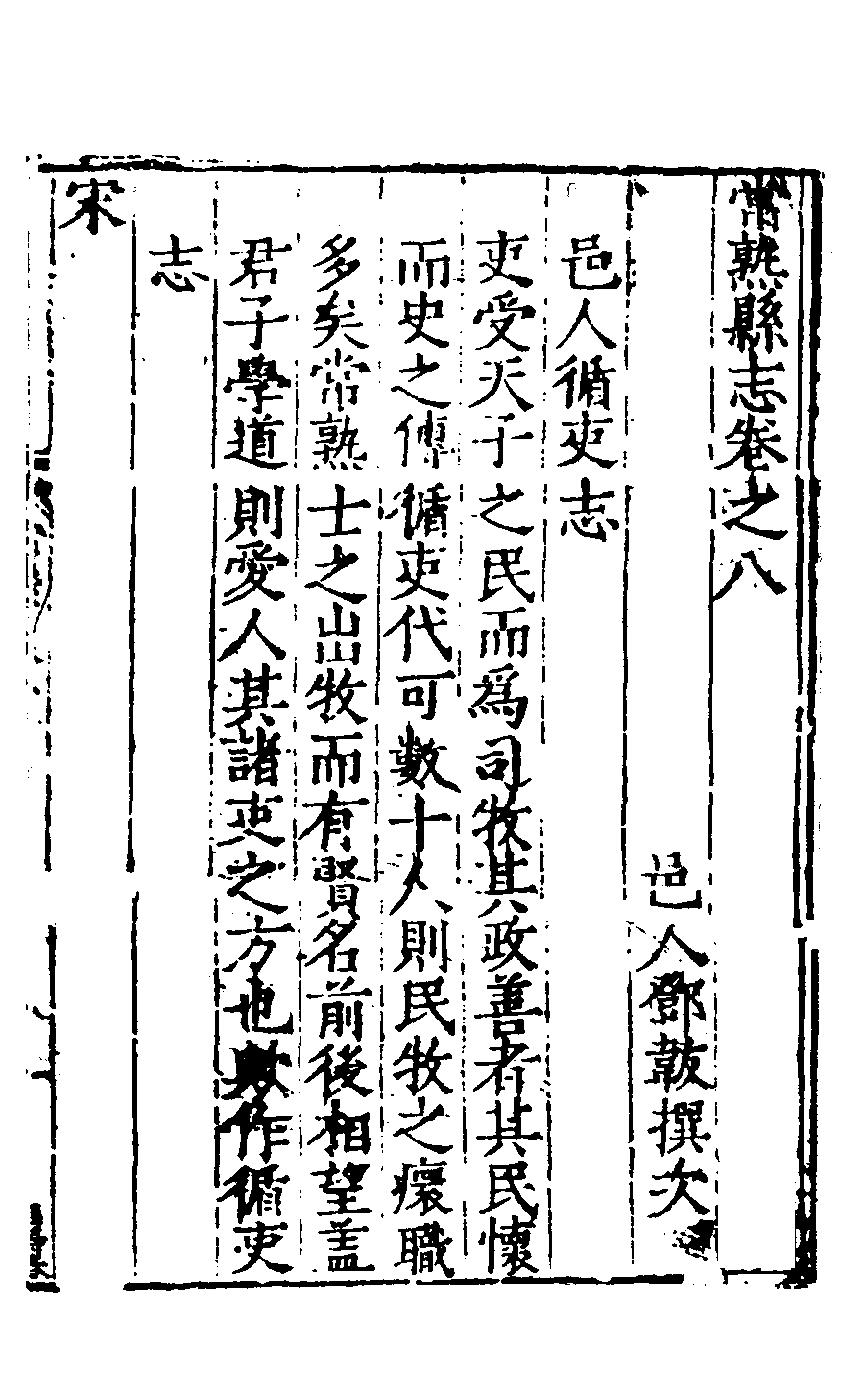 常熟縣志卷之八
邑人鄧韍撰次
邑人循吏志
吏受天子之民而爲司牧其政善者其民懷
而史之傳循吏代可數十人則民牧之瘝職
多矣常熟士之出牧而有賢名前後相望盖
君子學道則愛人其諸吏之方也歟作循吏
志
宋